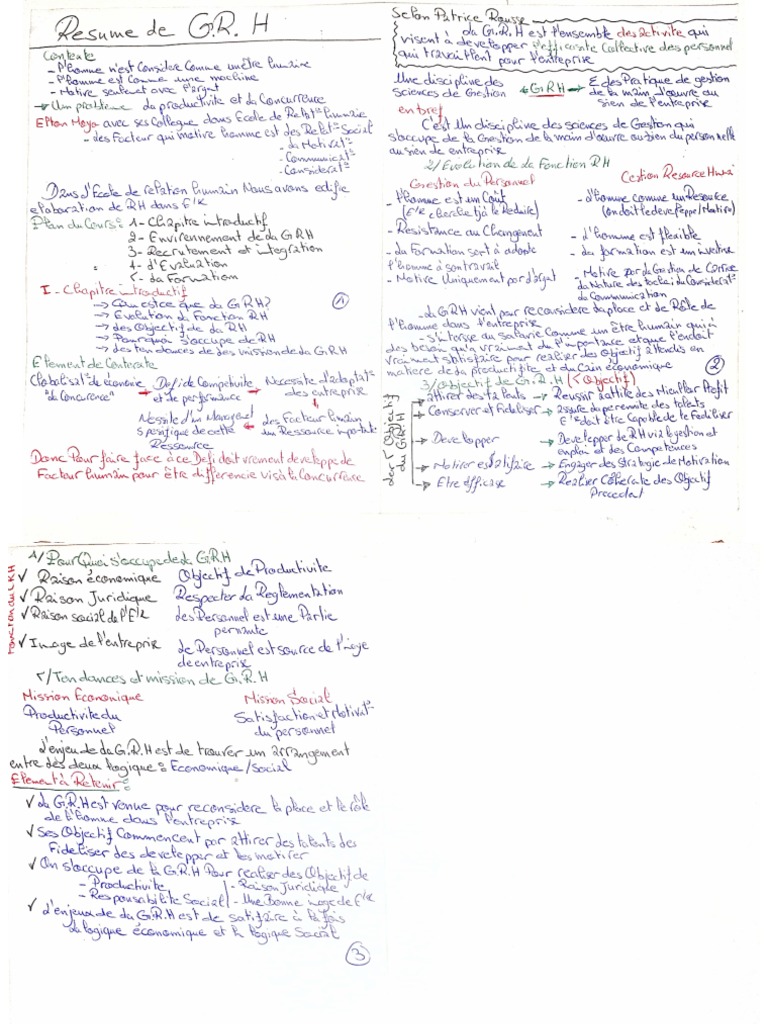 Resume de G.R.H
Contexte
- l'homme n'est considere comme un être humaine
- l'homme est comme une machine
- Motive seulement avec l'argent
→ Un probleme da productivite et da Concurrence
Elton Mayo avec ses Collegue dans Ecole de Relat° humaine
- des Facteur qui motive homme est des Relat° Social
- da Motivat°
- Communicat°
- Considerat°
Dans d'Ecole de relation humain Nous avons edifie
elaboration de RH dans E/se
Plan du Cours: 1- Chapitre introductif
2- Environnement de da GRH
3- Recrutement et integration
4- d'Evaluation
5- da Formation
I- Chapitre introductif
→ Qu'est ce que da G.R.H?
→ Evolution da Fonction RH
→ des Objectif de da RH
→ Pourquoi s'occupe de RH
→ des tendances de des mission de da G.R.H
1
Element de Contexte
Globalisat° de économie
"de Concurence"
→ Defi de Competivite
et de performance
→ Necessite d'adaptat°
des entreprise
Nessite d'un Management
spesifique de cette
Ressource
← des Facteur humain
un Ressource importante
Donc Pour faire face à ce Defi doit vrement developpe de
Facteur humain pour être differencie vis à la Concurrence
Selon Patrice Rousse
da G.R.H est l'ensemble des activite qui
visent à developper l'efficacite Collective des personnel
qui travaillent pour l'entreprise
Une discipline des
sciences de Gestion
← GRH →
E des Pratique de gestion
de la main d'œuvre au
sien de l'entreprise
en bref
C'est Un discipline des sciences de Gestion qui
s'occupe de la Gestion de la main d'œuvre au bien du personnelle
au sien de entreprise
2/ Evolution de da Fonction RH
Gestion du Personnel
- l'homme est un Cout
(E/se cherche tjr à le Reduire)
- Resistance au Changment
- da Formation sert à adapte
l'homme à son travail
- Motive Uniquement par d'argent
Gestion Resource Humain
- d'homme comme un Resource
(on doit le developpe/Motive)
- d'homme est flexible
- da formation est un investie
- Motive par da Gestion de Carriere
da Nature des tache / da Considerat°
da Communication
- da GRH vient pour reconsidere da place et de Rôle de
l'homme dans l'entreprise
- s'interesse au salarie comme un être humain qui a
des besoin qu'a vraiment de l'importance et que l'on doit
vraiment satisfaire pour realiser des Objectif attendis en
matiere de la productifite et du Gain economique
2
3/ Objectif de G.R.H (5 Objectif)
des 5 Objectif
du GRH
→ Attirer des talents → Reussir attire des Meilleur Profil
→ Conserver et Fideliser → Assure da perennite des talents
E/se doit être Capable de te Fideliser
→ Developper → Developper de RH via la gestion et
emploi et des Competences
→ Motirer et satifaire → Engager des Strategie de Motivation
→ Etre efficase → Realiser l'ensemble des Objectif
Precedant
4/ Pour Quoi s'occupe de da G.R.H
✓ Raison économique Objectif de Productivite
✓ Raison Juridique Respecter da Reglementation
✓ Raison social de l'E/se des Personnel est une Partie
prenante
✓ Image de l'entreprise de Personnel est source de l'image
de entreprise
5/ Tendances et mission de G.R.H
Mission Economique
Productivite du
Personnel
Mission Social
Satisfaction et Motivat°
du personnel
d'enjeu de da G.R.H est de trouver un arrangement
entre des deux logique: Economique / Social
Element à Retenir:
✓ da G.R.H est venue pour reconsidere la place et le rôle
de l'homme dans l'entreprise
✓ Ses Objectif Commencent par attirer des talents des
Fideliser des developper et les motirer
✓ On s'occupe de la G.R.H Pour realiser des Objectif de
- Productivite - Raison Juridique
- Responsabilite Social - Une Bonne image de E/se
✓ d'enjeux de da G.R.H est de satisfaire à la fois
da logique économique et la logique Social
3